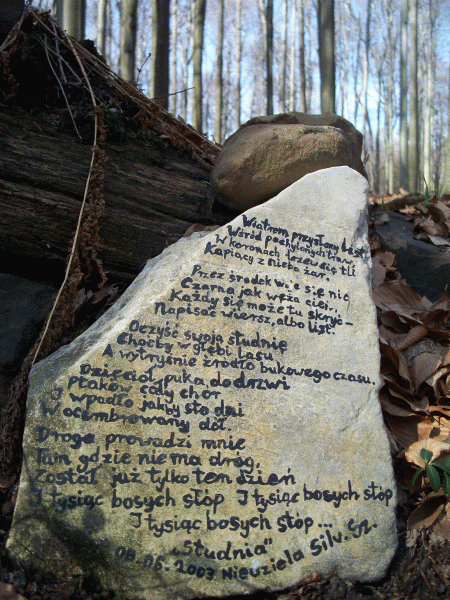 Wiatrem przysłany list
Wśród pochylonych traw
W koronach drzew się tli
Kapiący z nieba żar.
Przez środek wije się nić
Czarna jak węża cień,
Każdy się może tu skryć –
Napisać wiersz, albo list.
Oczyść swoją studnię
Choćby w głębi lasu
A wytryśnie źródło bukowego czasu.
Dzięcioł puka do drzwi
Ptaków cały chór
I wpadło jakby sto dni
W ocembrowany dół.
Droga prowadzi mnie
Tam gdzie nie ma dróg,
Został już tylko ten dzień
I tysiąc bosych stóp I tysiąc bosych stóp
I tysiąc bosych stóp...
„Studnia"
09.05.2003 Niedziela Silv. Sz.